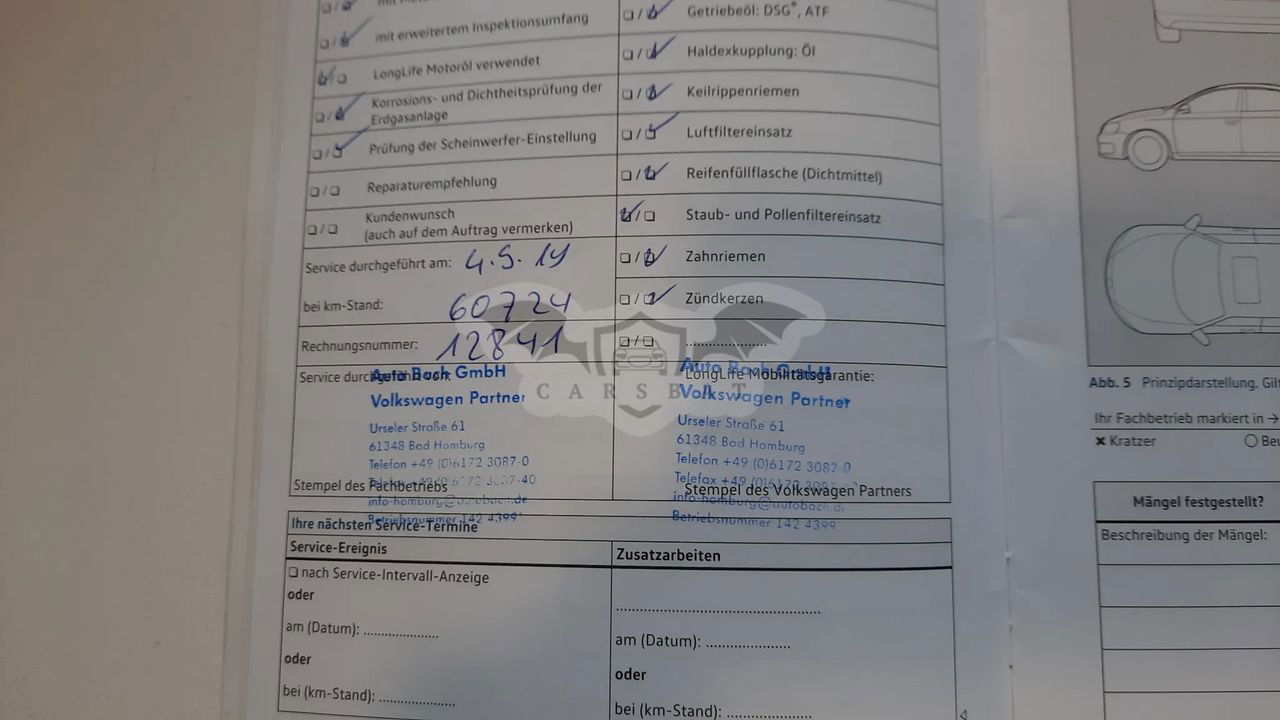 mit erweitertem Inspektionsumfang
LongLife Motoröl verwendet
Korrosions- und Dichtheitsprüfung der
Erdgasanlage
Prüfung der Scheinwerfer-Einstellung
Reparaturempfehlung
Kundenwunsch
(auch auf dem Auftrag vermerken)
Service durchgeführt am: 4.9.19
bei km-Stand: 60724
Rechnungsnummer: 12841
Service durchgeführt von:
Auto Bach GmbH
Volkswagen Partner
Urseler Straße 61
61348 Bad Homburg
Telefon +49 (0)6172 3087-0
Telefax +49 (0)6172 3087-40
info-homburg@autobach.de
Betriebsnummer 142 4399
Stempel des Fachbetriebs
Getriebeöl: DSG®, ATF
Haldexkupplung: Öl
Keilrippenriemen
Luftfiltereinsatz
Reifenfüllflasche (Dichtmittel)
Staub- und Pollenfiltereinsatz
Zahnriemen
Zündkerzen
LongLife Mobilitätsgarantie:
Auto Bach GmbH
Volkswagen Partner
Urseler Straße 61
61348 Bad Homburg
Telefon +49 (0)6172 3087-0
Telefax +49 (0)6172
info-homburg@autobach.de
Betriebsnummer 142 4399
Stempel des Volkswagen Partners
CARSBAT
Ihre nächsten Service-Termine
Service-Ereignis
nach Service-Intervall-Anzeige
oder
am (Datum): ....................
oder
bei (km-Stand): ....................
Zusatzarbeiten
am (Datum): ......................
oder
bei (km-Stand): ......................
Abb. 5 Prinzipdarstellung.
Ihr Fachbetrieb markiert in →
✖ Kratzer
Mängel festgestellt?
Beschreibung der Mängel: